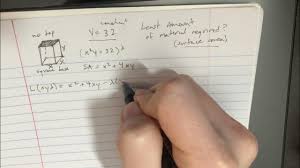 no top
constant
V = 32
Least amount
of material required?
(surface area)
(x²y = 32)λ
x
y
x
square base
SA = x² + 4xy
L(x,y,λ) = x² + 4xy - λ(